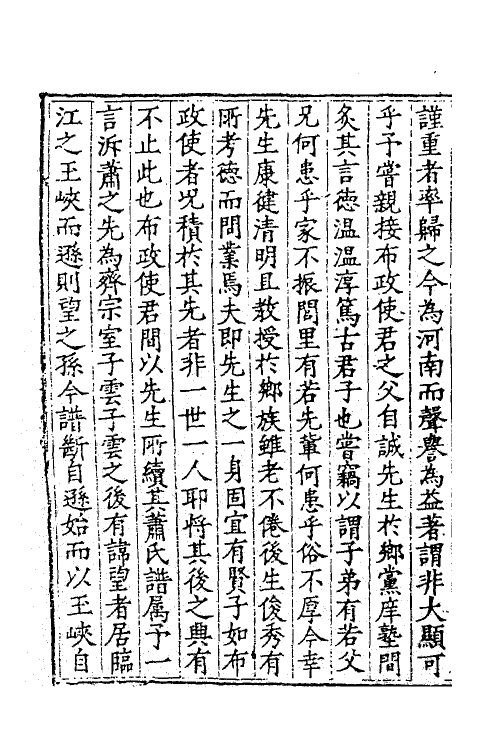 謹重者率歸之今為河南而聲譽為益著謂非大顯可
乎予嘗親接布政使君之父自誠先生於鄉黨庠塾間
炙其言德温温淳篤古君子也嘗竊以謂子弟有若父
兄何患乎家不振閭里有若先軰何患乎俗不厚今幸
先生康健清明且教授於鄉族雖老不倦後生俊秀有
所考徳而問業焉夫即先生之一身固宜有賢子如布
政使者况積於其先者非一世一人耶將其後之興有
不止此也布政使君間以先生所續其蕭氏譜属予一
言泝蕭之先為齊宗室子雲子雲之後有諱望者居臨
江之王峽而遜則望之孫今譜斷自遜始而以王峽自